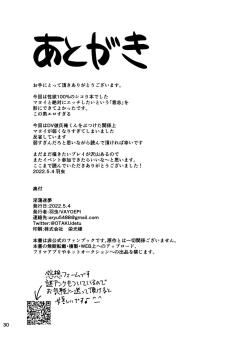 あとがき
お手にとって頂きありがとうございます。
今回は性欲100%のシコり本でした
マヌイと絶対にエッチしたいという「意志」を
形にできてよかったです。
この男エロすぎる
今回はDV彼氏俺くんをぶつけた関係上
マヌイが弱くなりすぎてしまいました
反省しています
弱すぎんだろと思いながら読んで頂ければ幸いです
まだまだ描きたいプレイが沢山あるので
またイベント参加できたらいいな〜と思います。
ここまで読んでいただきありがとうございました!
2022.5.4 羽虫
奥付
淫蓮迷夢
発行日:2022.5.4
発行者:羽虫/VAYOEPI
Twitter@OTAKUdetu
印刷:株式会社 栄光様
本書は非公式のファンブックです。原作とは一切関係ございません。
本書の無断転載・複製・WEB上へのアップロード、
フリマアプリやネットオークションへの出品を禁じます。
感想フォームです
謎アンケもついているので
お気軽に送って頂けると
嬉しいです♪
30